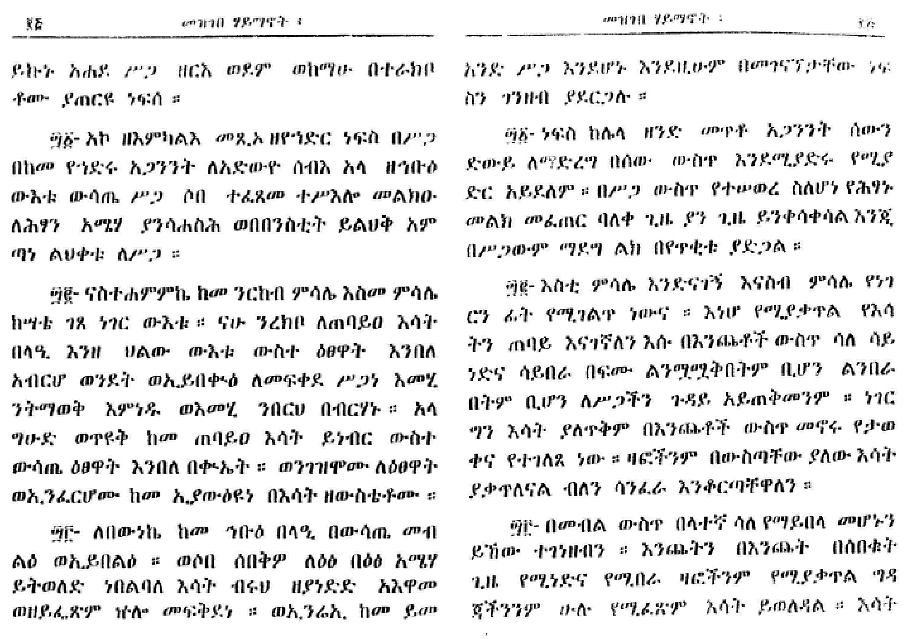 መዝገበ ሃይማኖት ፡
ይኩኑ አሐደ ሥጋ ዘርእ ወደም ወከማሁ በተራክቦ
ቶሙ ያጠርዩ ነፍሰ ።
፴፩- አኮ ዘእምካልእ መጺኦ ዘየኀድር ነፍስ በሥጋ
በከመ የኀድሩ አጋንንት ለአድውዮ ሰብእ አላ ዘኅቡዕ
ውእቱ ውሳጤ ሥጋ ሶበ ተፈጸመ ተሥእሎ መልክዑ
ለሕፃን አሜሃ ያንሳሐስሕ ወበበንስቲት ይልህቅ አም
ጣነ ልህቀቱ ለሥጋ ።
፴፪- ናስተሐምምኬ ከመ ንርከብ ምሳሌ እስመ ምሳሌ
ከሣቴ ገጸ ነገር ውእቱ ። ናሁ ንረክቦ ለጠባይዐ እሳት
በላዒ እንዘ ሀልው ውእቱ ውስተ ዕፀዋት እንበለ
አብርሆ ወንደት ወኢይበቍዕ ለመፍቀደ ሥጋነ እመሂ
ንትማወቅ እምነዱ ወእመሂ ንበርህ በብርሃኑ ። አላ
ግሁድ ወጥዩቅ ከመ ጠባይዐ እሳት ይነብር ውስተ
ውሳጤ ዕፀዋት እንበለ በቍኤት ። ወንገዝሞሙ ለዕፀዋት
ወኢንፈርሆሙ ከመ ኢያውዕዩነ በእሳት ዘውስቴቶሙ ።
፴፫- ለበውነኬ ከመ ኅቡዕ በላዒ በውሳጤ መብ
ልዕ ወኢይበልዕ ። ወሶበ ሰበቅዎ ለዕፅ በዕፅ አሜሃ
ይትወለድ ነበልባለ እሳት ብሩህ ዘያንድድ አእዋመ
ወዘይፌጽም ኵሎ መፍቅደነ ። ወኢንሬኢ ከመ ይመ
መዝገበ ሃይማኖት ፡
አንድ ሥጋ እንደሆኑ እንደዚሁም በመገናኘታቸው ነፍ
ስን ገንዘብ ያደርጋሉ ።
፴፩- ነፍስ ከሌላ ዘንድ መጥቶ አጋንንት ሰውን
ድውይ ለማድረግ በሰው ውስጥ እንደሚያድሩ የሚያ
ድር አይደለም ። በሥጋ ውስጥ የተሠወረ ስለሆነ የሕፃኑ
መልክ መፈጠር ባለቀ ጊዜ ያን ጊዜ ይንቀሳቀሳል እንጂ
በሥጋውም ማደግ ልክ በየጥቂቱ ያድጋል ።
፴፪- እስቲ ምሳሌ እንድናገኝ እናስብ ምሳሌ የነገ
ርን ፊት የሚገልጥ ነውና ። እነሆ የሚያቃጥል የእሳ
ትን ጠባይ እናገኛለን እሱ በእንጨቶች ውስጥ ሳለ ሳይ
ነድና ሳይበራ በፍሙ ልንሟሟቅበትም ቢሆን ልንበራ
በትም ቢሆን ለሥጋችን ጉዳይ አይጠቅመንም ። ነገር
ግን እሳት ያለጥቅም በእንጨቶች ውስጥ መኖሩ የታወ
ቀና የተገለጸ ነው ። ዛፎችንም በውስጣቸው ያለው እሳት
ያቃጥለናል ብለን ሳንፈራ እንቆርጣቸዋለን ።
፴፫- በመብል ውስጥ በላተኛ ሳለ የማይበላ መሆኑን
ይኸው ተገነዘብን ። እንጨትን በእንጨት በሰበቁት
ጊዜ የሚነድና የሚበራ ዛፎችንም የሚያቃጥል ግዳ
ጃችንንም ሁሉ የሚፈጽም እሳት ይወለዳል ። እሳት